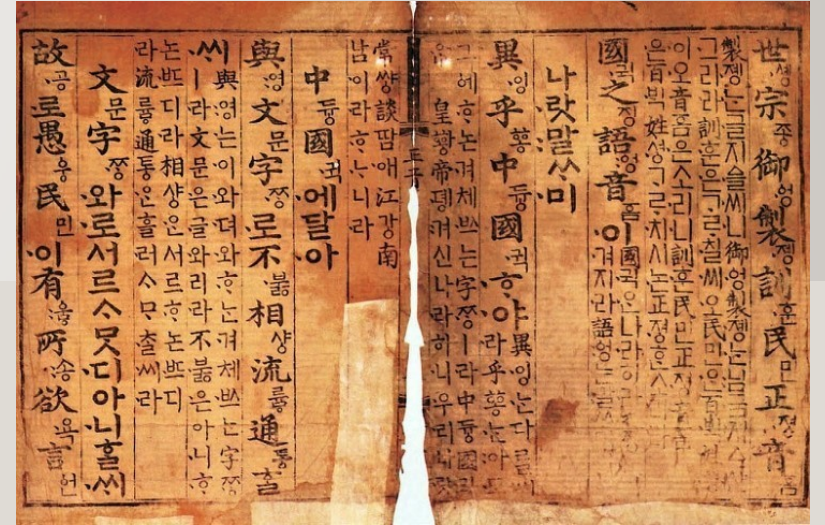 世솅宗종御엉製졩訓훈民민正졍音
製졩는글지슬씨니御엉製졩는님금지스샨
그리라訓훈은ᄀᆞᄅᆞ칠씨오民민ᄋᆞᆫ百ᄇᆡᆨ
이오音ᅙᅳᆷ은소리니訓훈民민正졍音
은百ᄇᆡᆨ姓셩ᄀᆞᄅᆞ치시논正졍ᄒᆞᆫ소
國귁之징語ᅌᅥᆼ音ᅙᅳᆷ이
國귁ᄋᆞᆫ나라히라
겨지라語ᅌᅥᆼ는
나랏말ᄊᆞ미
異잉乎ᅘᅩᆼ中듕國귁ᄒᆞ야
異잉ᄂᆞᆫ다ᄅᆞᆯ씨
라乎ᅘᅩᆼᄂᆞᆫ아
그ᅌᅦᄒᆞ논겨체ᄡᅳ는字ᄍᆞᆼㅣ라中듕國귁
皇ᅘᅪᆼ帝뎽겨신나라히니우리나
常쌰ᇰ談땀애江가ᇰ南
남이라ᄒᆞᄂᆞ니라
中듕國귁에달아
與영文문字ᄍᆞᆼ로不붏相샤ᇰ流류ᇢ通토ᇰᄒᆞᆯ
ᄊᆡ與영는이와뎌와ᄒᆞ는겨체ᄡᅳ는字ᄍᆞᆼ
ㅣ라文문은글와리라不붏은아니ᄒᆞ
논ᄠᅳ디라相샤ᇰᄋᆞᆫ서르ᄒᆞ논ᄠᅳ디
라流류ᇢ通토ᇰᄋᆞᆫ흘러ᄉᆞᄆᆞᄎᆞᆯ씨라
文문字ᄍᆞᆼ와로서르ᄉᆞᄆᆞᆺ디아니ᄒᆞᆯᄊᆡ
故공로愚ᅌᅮᆼ民민이有ᅌᅮᇢ所송欲욕言언